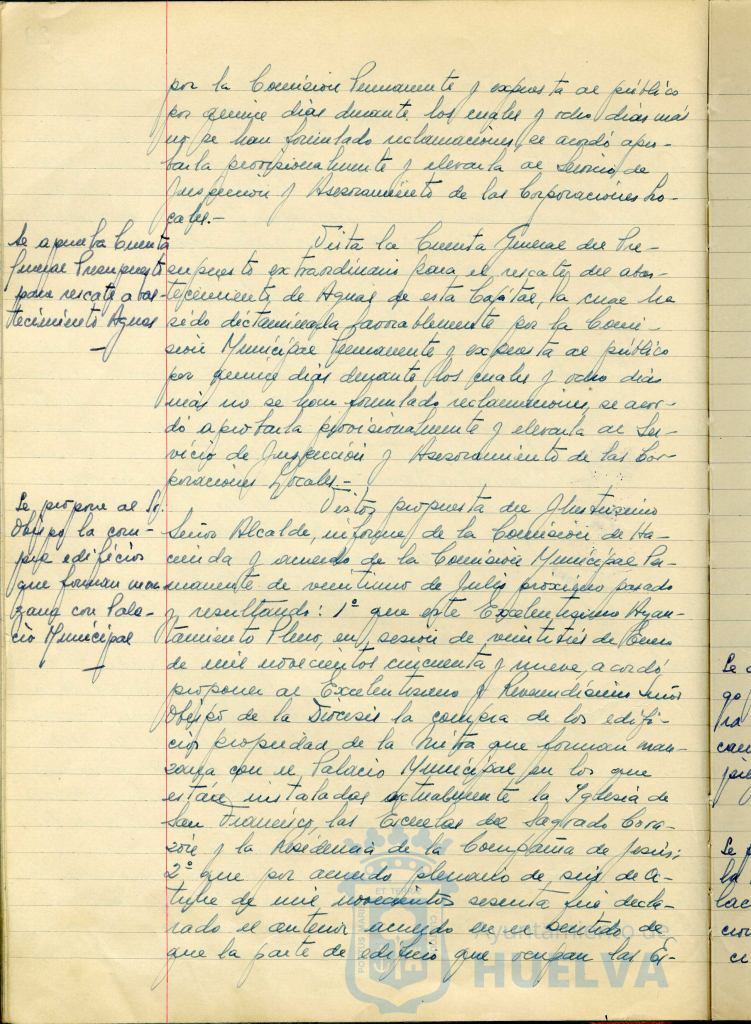 por la Comision Permanente y expuesta al público
por quince dias durante los cuales y ocho dias más
no se han formulado reclamaciones, se acordó apro-
barla provisionalmente y elevarla al Servicio de
Inspección y Asesoramiento de las Corporaciones Lo-
cales.-
Se aprueba Cuenta
General Presupuesto
para rescate abas-
tecimiento Aguas
Vista la Cuenta General del Pre-
supuesto extraordinario para el rescate del abas-
tecimiento de Aguas de esta Capital, la cual ha
sido dictaminada favorablemente por la Comi-
sion Municipal Permanente y expuesta al público
por quince dias durante los cuales y ocho dias
más no se han formulado reclamaciones, se acor-
dó aprobarla provisionalmente y elevarla al Ser-
vicio de Inspección y Asesoramiento de las Cor-
poraciones Locales.-
Se propone al Sr.
Obispo la com-
pra edificios
que forman man-
zana con Pala-
cio Municipal
Vistos propuesta del Ilustrisimo
Señor Alcalde, informe de la Comisión de Ha-
cienda y acuerdo de la Comisión Municipal Per-
manente de veintiuno de Julio próximo pasado
y resultando: 1º que este Excelentisimo Ayun-
tamiento Pleno, en sesión de veintitrés de Enero
de mil novecientos cincuenta y nueve, acordó
proponer al Excelentisimo y Reverendisimo Señor
Obispo de la Diócesis la compra de los edifi-
cios propiedad de la Mitra que forman man-
zana con el Palacio Municipal en los que
están instaladas actualmente la Iglesia de
San Francisco, las Escuelas del Sagrado Cora-
zón y la Residencia de la Compañia de Jesús;
2º que por acuerdo plenario de seis de Oc-
tubre de mil novecientos sesenta fué decla-
rado el anterior acuerdo en el sentido de
que la parte de edificio que ocupan las Es-
Ayuntamiento de
HUELVA